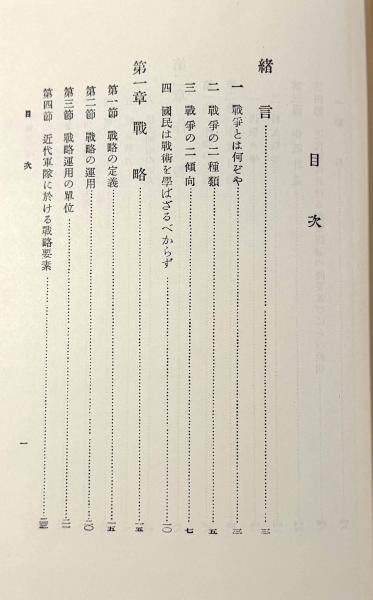 目次
緒言……三
一 戰爭とは何ぞや……三
二 戰爭の二種類……五
三 戰爭の二傾向……七
四 國民は戰術を學ばざるべからず……一〇
第一章 戰略……一五
第一節 戰略の定義……一五
第二節 戰略の運用……二〇
第三節 戰略運用の單位……二一
第四節 近代軍隊に於ける戰略要素
目次
一